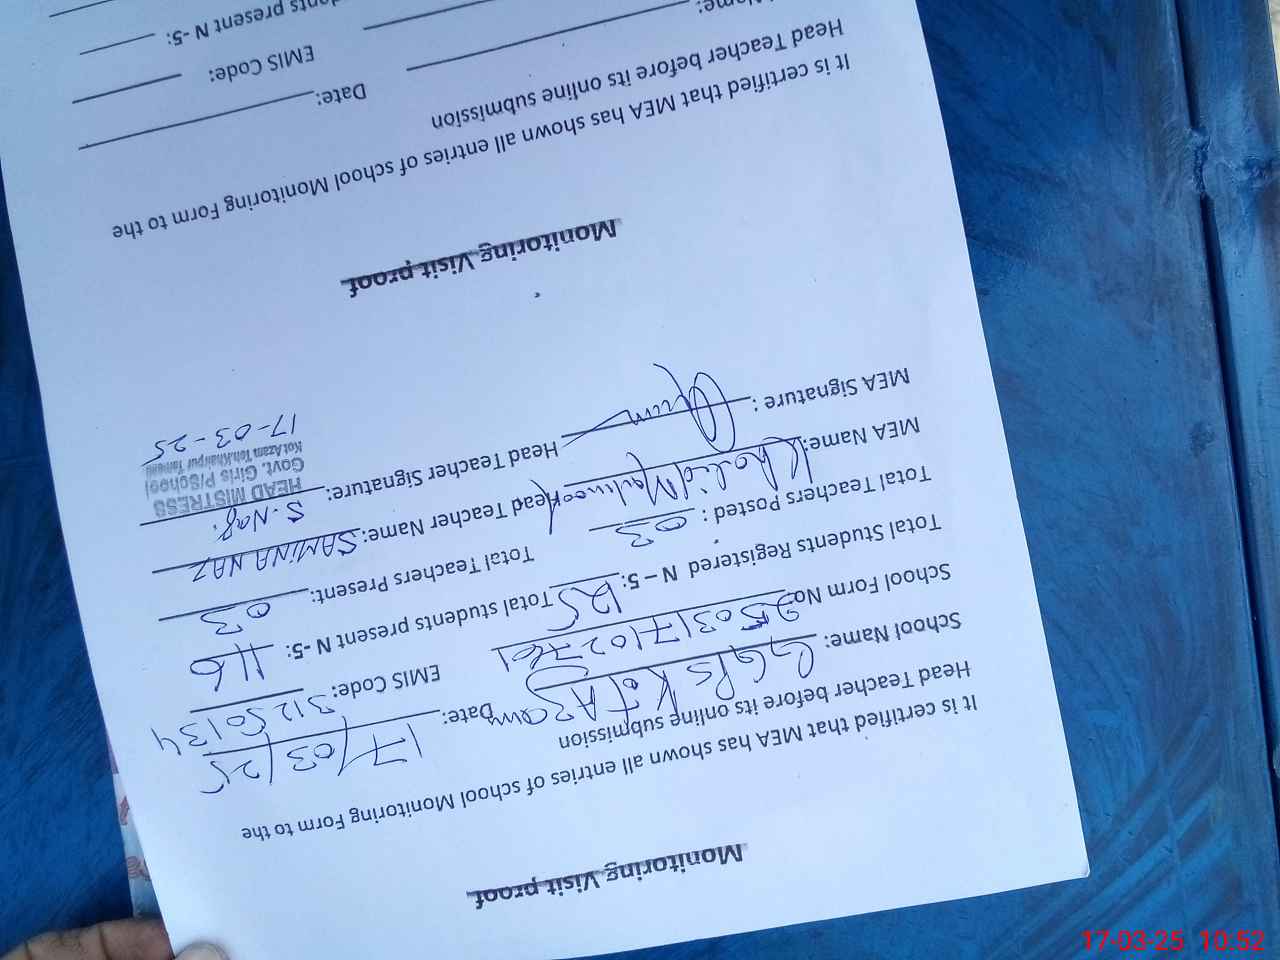 Monitoring Visit proof
It is certified that MEA has shown all entries of school Monitoring Form to the
Head Teacher before its online submission
School Name: GGPS Kot Azam Date: 17/03/25
School Form No 25031710276 EMIS Code: 31250134
Total Students Registered N – 5: 125 Total students present N -5: 116
Total Teachers Posted : 03 Total Teachers Present: 03
MEA Name: Khalid Mahmood Head Teacher Name: SAMINA NAZ
MEA Signature : Head Teacher Signature: S. Naz.
HEAD MISTRESS
Govt. Girls P/School
Kot Azam Teh. Khairpur Tamewali
17-03-25
Monitoring Visit proof
It is certified that MEA has shown all entries of school Monitoring Form to the
Head Teacher before its online submission
Name: Date:
EMIS Code:
dents present N -5:
17-03-25 10:52